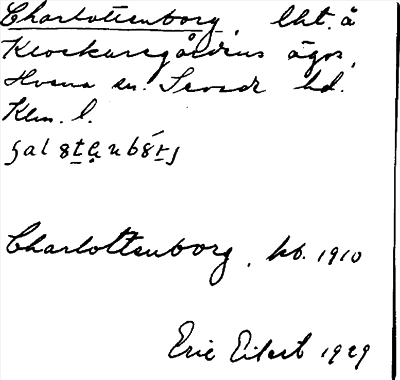 Charlottenborg, lht. å
Klockaregårdens ägor,
Hvena sn. Sevede hd.
Klm. l.
Charlottenborg. kb. 1910
Eric Eilert 1929